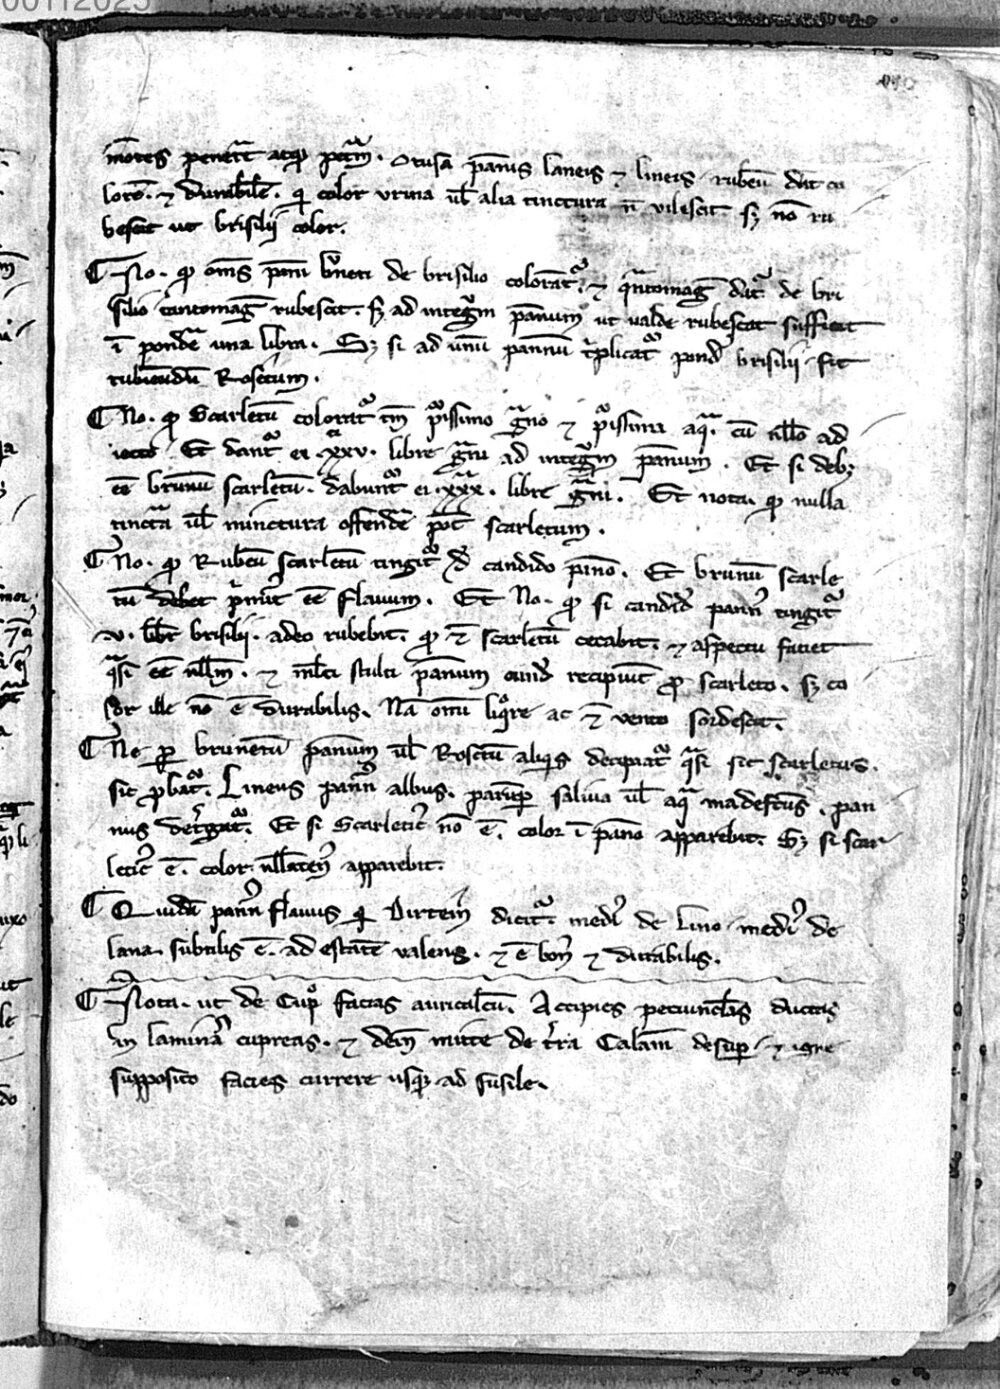 mōtes penet̄t atq̢ petͣm̄. Orusā pānis laneis ⁊ lineis rubeū dat co
lorē. ⁊ durabilē. qi color urina ul̄ alia tinctura n̄ vilescit. sꝫ nō ru
bescit ut brisilii color.
¶ No. ꝙ oms pāni bͮneti de brisilio colorātͬ. ⁊ qͣntomag dat̉ de bri
silio tantomaḡ rubescit. sꝫ ad integͣm pānum ut valde rubescat sufficit
ī pondē una libra. Sꝫ si ad unū pannū tͥplicatͬ pond̄ brisilii fit
rubicūdū Rosetum.
¶ No. ꝙ Scarletū coloratͬ tm̄ pͥssimo gͣno ⁊ pͥssima aqͣ. cū nllo ad
iecto Et dant̉ ei .xxv. libre gͣni ad integͣm pānum. Et si debꝫ
eē brunū scarletū. dabunt̉ ei .xxx. libre gͣni. Et nota. ꝙ nulla
tinctā ul̄ minctura offendē pōt scarletum.
¶ No. ꝙ Rubeū scarletū tingit̉ d̄ candido pāno. Et brunū scarle
tū debet pͥmit eē flavum. Et No. ꝙ si candid̉ pann̉ tingit̉
.v. libr̄ brisilii. adeo rubebit. ꝙ ⁊ scarletū cecabit. ⁊ aspectu faciet
qͣsi eē nllm̄. ⁊ ml̄ti stulti pānum eund̄ recipiūt pro scarleto. sꝫ co
lor ille nō ē durabilis. Nā om̄i liqͦre ac ⁊ vento sordescit.
¶ Ne ꝑ brunetū pānum ul̄ Rosetū aliqis decipiat̉ qͣsi sit scarletus.
sic ꝓbat̉. Lineus pann̉ albus. parūꝑ saliva ul̄ aqͣ madefctūs. pan
nus det̉gat̉. Et si Scarletū nō ē. color ī pāno apparebit. Sꝫ si scar
letū ē. color nllaten̉ apparebit.
¶ Quidā pann̉ flavus qi Dirtem̄ dicit̉. medỉ de lino medỉ de
lana. subtilis ē. ad estatē valens. ⁊ ē bon̉ ⁊ durabilis.
¶ Nota. ut de Cupͦ facias auricalcū. Accipies peciunclas ductas
in laminā cupreas. ⁊ dein̄ mitte de tͥra Calam̄ desuꝑ ⁊ igne
supposito facies currere usqꝫ ad fusile.